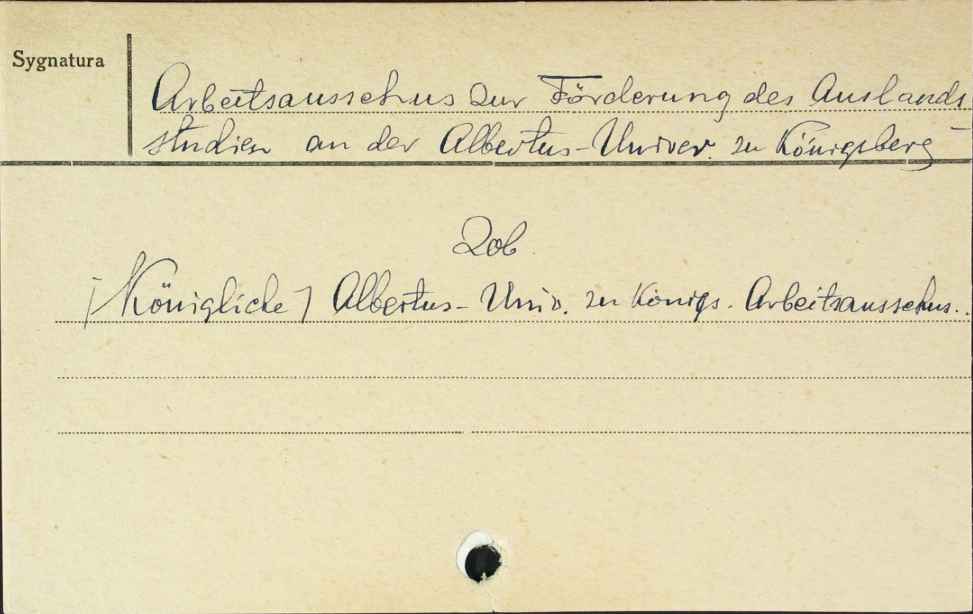 Sygnatura
Arbeitsausschus zur Förderung des Auslands
studien an der Albertus-Univer. zu Königsberg
Zob.
[Königliche] Albertus-Univ. zu Königs. Arbeitsausschus..